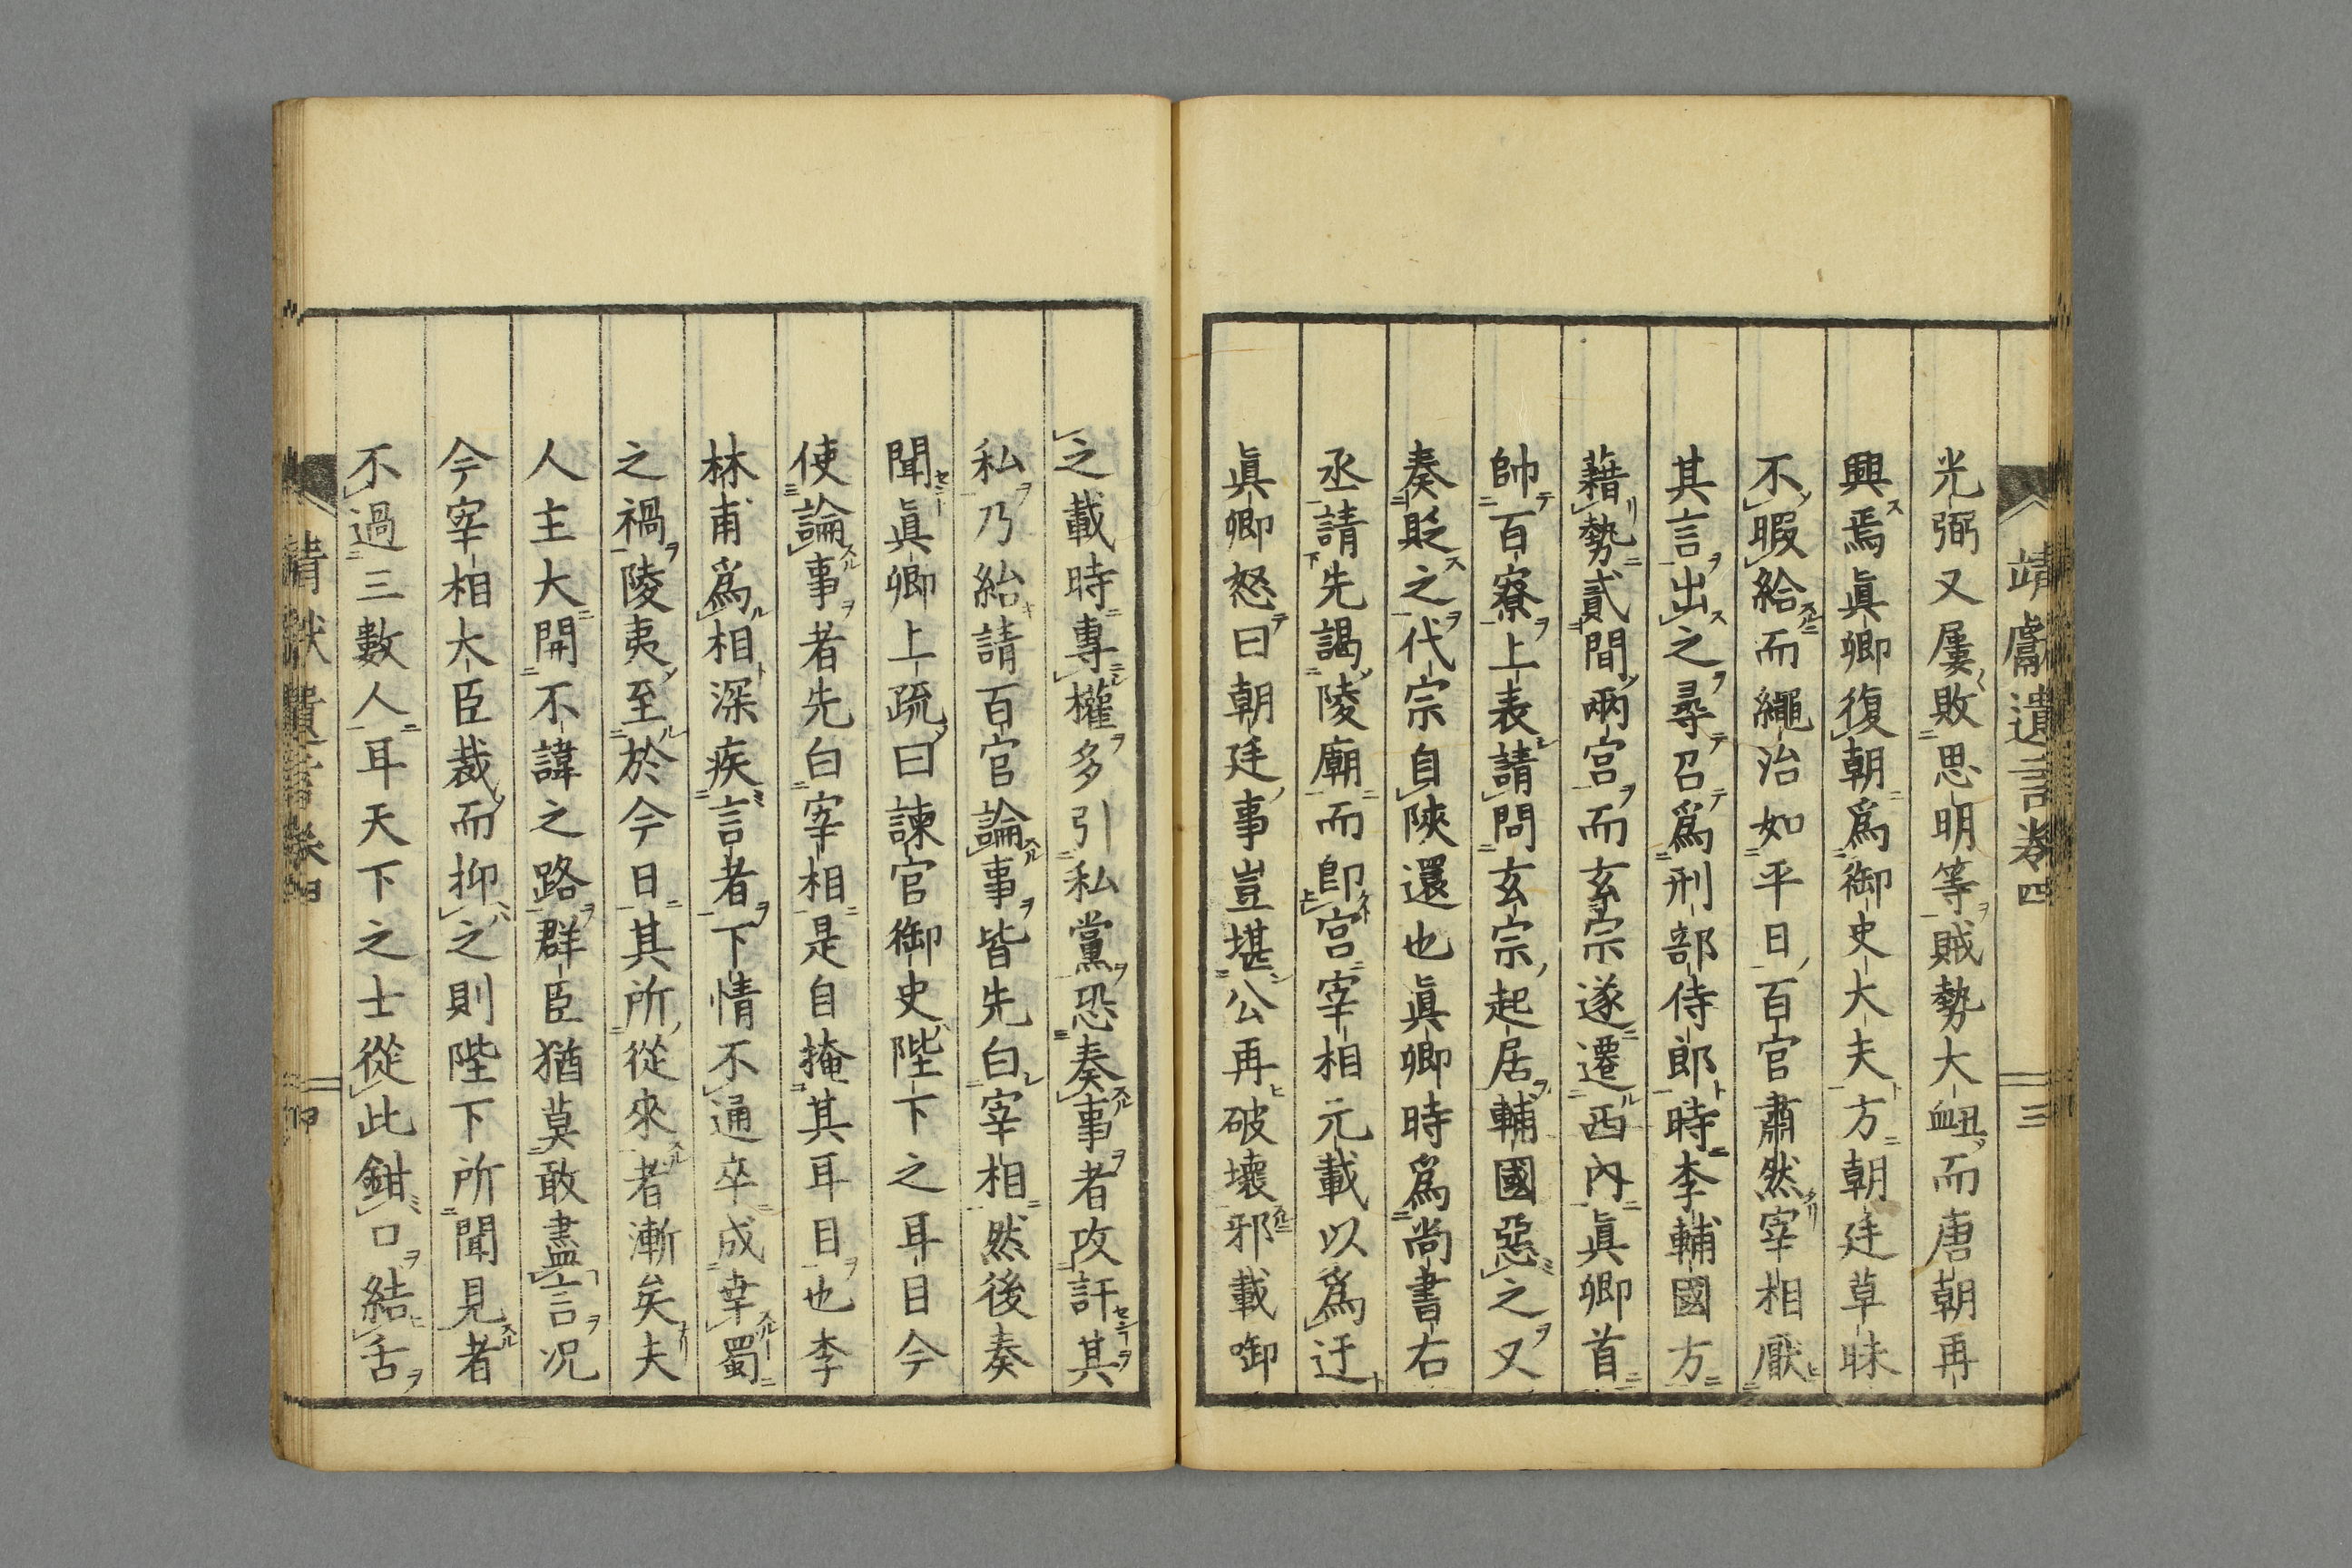 靖獻遺言卷四 三
光弼又屢敗思明等賊勢大衄而唐朝再
興焉眞卿復朝爲御史大夫方朝廷草昧
不暇給而繩治如平日百官肅然宰相厭
其言出之尋召爲刑部侍郎時李輔國方
藉勢貳間兩宮而玄宗遂遷西內眞卿首
帥百寮上表請問玄宗起居輔國惡之又
奏貶之代宗自陝還也眞卿時爲尚書右
丞請先謁陵廟而卽宮宰相元載以爲迂
眞卿怒曰朝廷事豈堪公再破壞邪載啣
之載時專權多引私黨恐奏事者攻訐其
私乃紿請百官論事皆先白宰相然後奏
聞眞卿上疏曰諫官御史陛下之耳目今
使論事者先白宰相是自掩其耳目也李
林甫爲相深疾言者下情不通卒成幸蜀
之禍陵夷至於今日其所從來者漸矣夫
人主大開不諱之路群臣猶莫敢盡言况
今宰相大臣裁而抑之則陛下所聞見者
不過三數人耳天下之士從此鉗口結舌